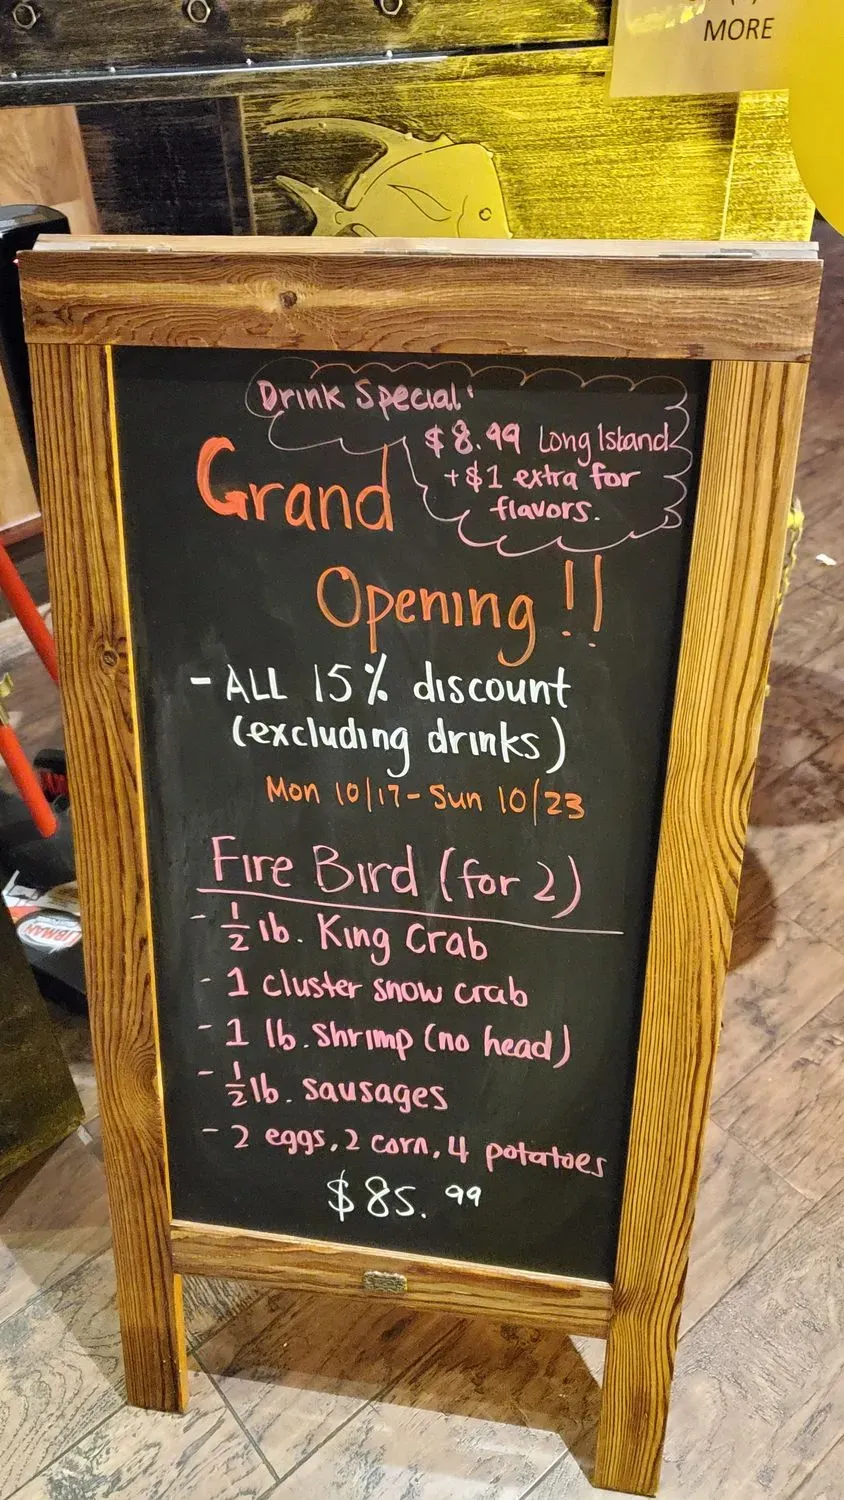 MORE
Drink Special:
$8.99 Long Island
+$1 extra for
flavors.
Grand
Opening!!
- ALL 15% discount
(excluding drinks)
Mon 10/17 - Sun 10/23
Fire Bird (for 2)
- 1/2 lb. King Crab
- 1 cluster snow crab
- 1 lb. Shrimp (no head)
- 1/2 lb. sausages
- 2 eggs, 2 corn, 4 potatoes
$85.99
LIBMAN